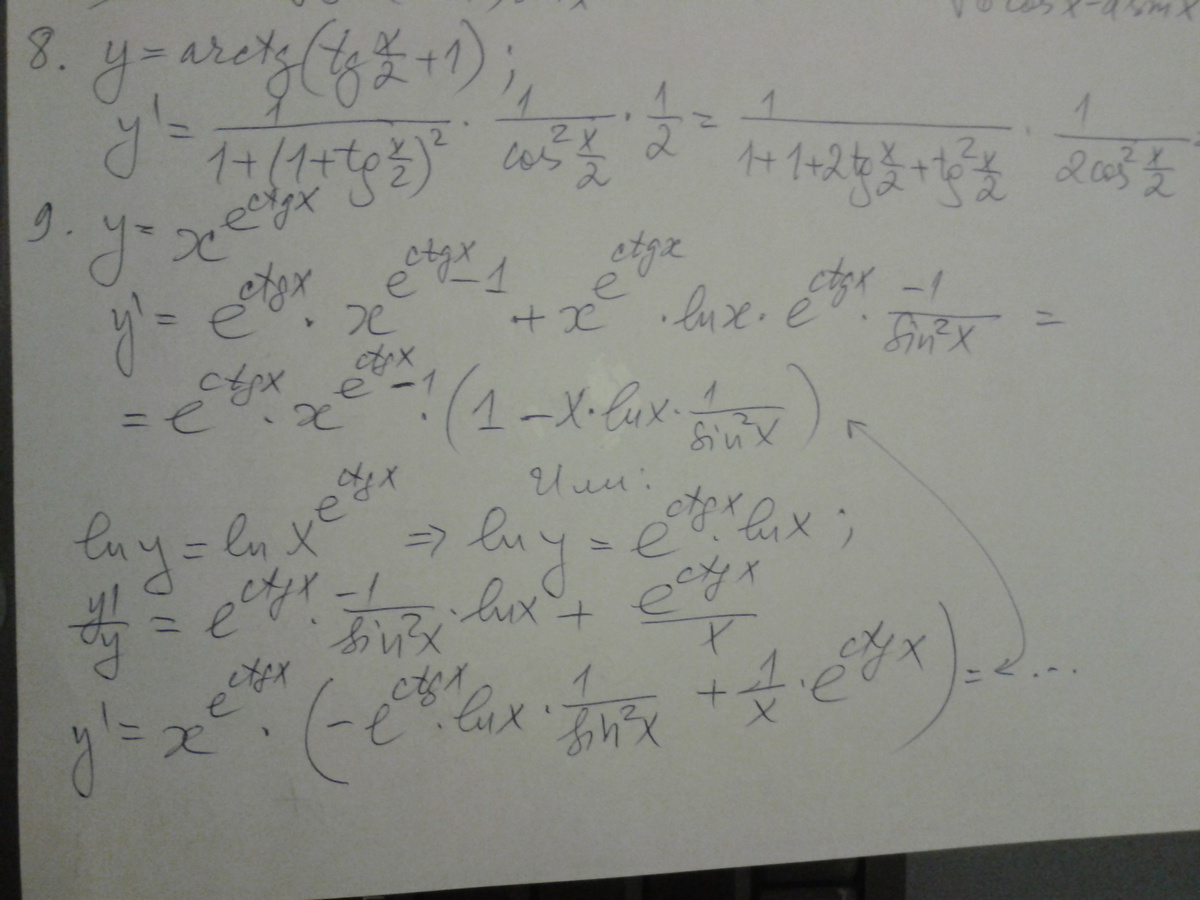 √6 cosx-asinx
8. y = arctg(tg x/2 + 1);
y' = 1/(1+(1+tg x/2)^2) · 1/(cos^2 x/2) · 1/2 = 1/(1+1+2tg x/2 + tg^2 x/2) · 1/(2cos^2 x/2)
9. y = x^(e^(ctgx))
y' = e^(ctgx) · x^(e^(ctgx) - 1) + x^(e^(ctgx)) · lnx · e^(ctgx) · -1/(sin^2 x) =
= e^(ctgx) · x^(e^(ctgx) - 1) · (1 - x·lnx · 1/(sin^2 x))
Или:
ln y = ln x^(e^(ctgx)) ⇒ ln y = e^(ctgx) · lnx;
y'/y = e^(ctgx) · -1/(sin^2 x) · lnx + e^(ctgx)/x
y' = x^(e^(ctgx)) · (-e^(ctgx) · lnx · 1/(sin^2 x) + 1/x · e^(ctgx)) = ...